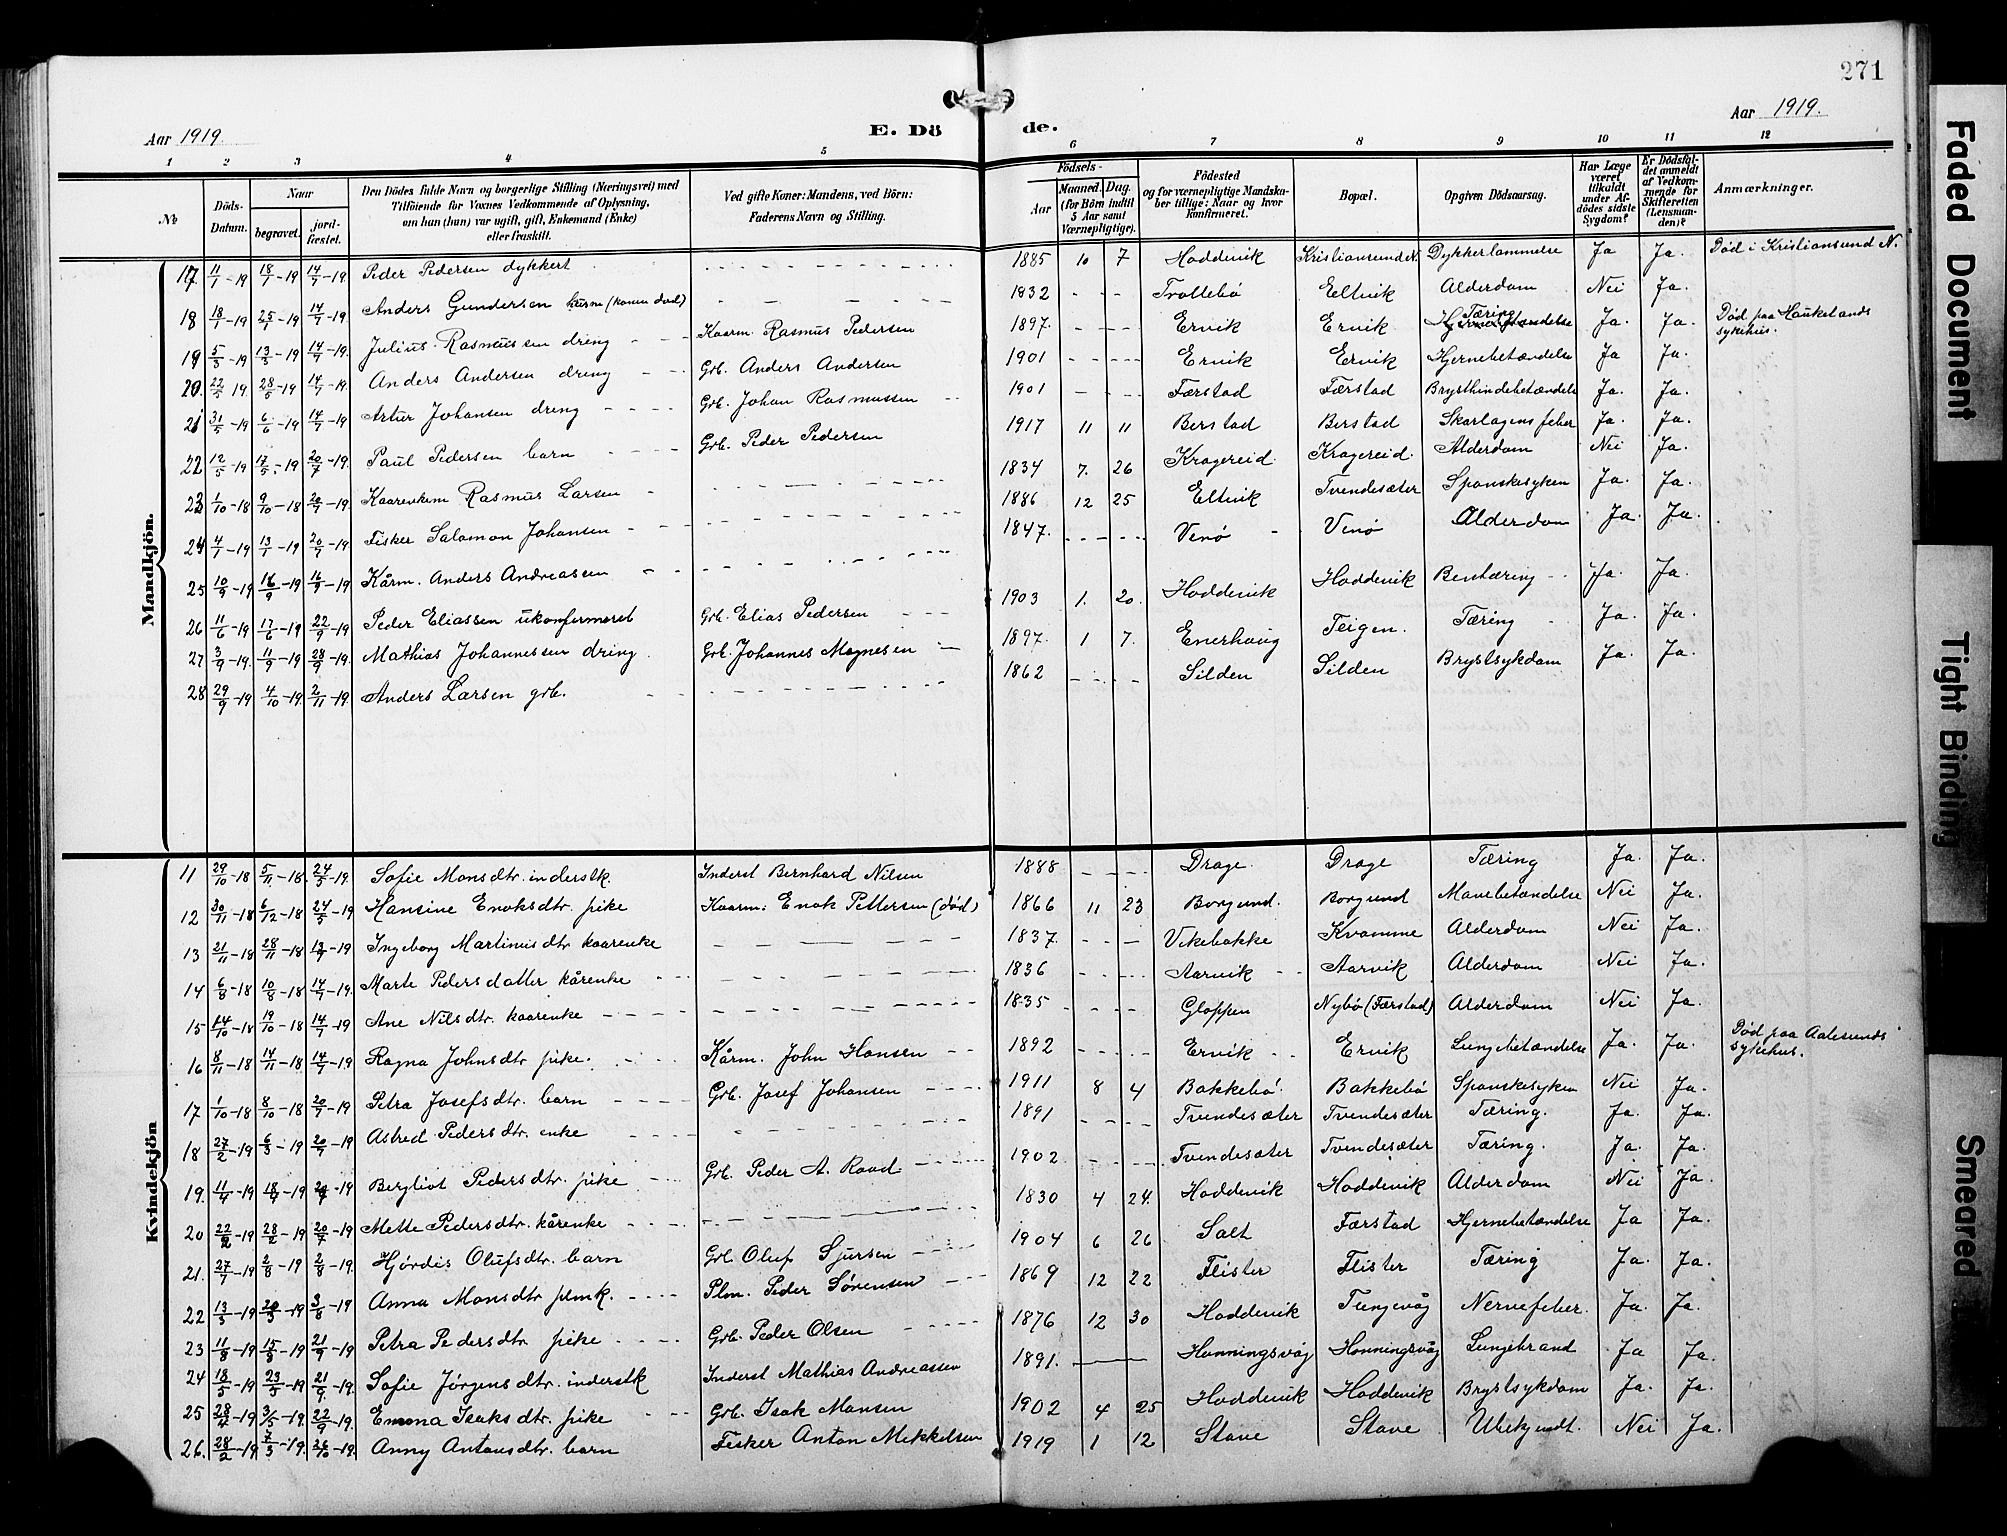 271
Aar 1919.
E. Dö de.
Aar 1919.
1 2 3 4 5 6 7 8 9 10 11 12
No
Döds-Datum.
Naar
begravet.
jord-fæstet.
Den Dödes fulde Navn og borgerlige Stilling (Næringsvei) med
Tilföiende for Voxnes Vedkommende af Oplysning,
om han (hun) var ugift, gift, Enkemand (Enke)
eller fraskilt.
Ved gifte Koner: Mandens, ved Börn:
Faderens Navn og Stilling.
Födsels-
Aar
Maaned. Dag.
(for Börn indtil
5 Aar samt
Værnepligtige).
Födested
og for værnepligtige Mandska-
ber tillige: Naar og hvor
konfirmeret.
Bopæl.
Opgiven Dödsaarsag.
Har Læge
været
tilkaldt
under Af-
dödes sidste
Sygdom?
Er Dödsfal-
det anmeldt
af Vedkom-
mende for
Skifteretten
(Lensman-
den)?
Anmærkninger.
Mandkjön.
17 11/1-19 18/1-19 14/7-19 Peder Pedersen dykkert 1885 10 7 Hoddevik Kristiansund N. Dykkerlammelse Ja Ja. Død i Kristiansund N.
18 18/1-19 25/1-19 14/7-19 Anders Gundersen kårm (konen død) 1832 Trollebø Eltvik Alderdom Nei Ja.
19 5/3-19 13/3-19 14/7-19. Julius Rasmussen dreng Kaarm. Rasmus Pedersen 1897. Ervik Ervik Tæring Ja. Ja. Død paa Haukelands sykehus.
20. 22/5 19. 28/5-19 14/7-19. Anders Andersen dreng Grb. Anders Andersen 1901 Ervik Ervik Hjernebetændelse Ja Ja.
21 31/5-19 6/6-19 14/7-19 Artur Johansen dreng Grb. Johan Rasmussen 1901 Færstad Færstad Brysthindebetændelse Ja. Ja.
22 12/5-19 17/5-19 20/7-19. Paul Pedersen barn Grb. Peder Pedersen 1917 11 11 Berstad Berstad Skarlagensfeber Ja. Ja.
23 1/10-18 9/10-18 20/7-19. Kaarenkem Rasmus Larsen 1834 7. 26 Kragereid. Kragereid. Alderdom Nei Ja.
24 4/1-19 13/1-19 20/7-19 Fisker Salomon Johansen 1886 12 25 Eltvik Tvendesæter Spanskesyken Ja. Ja.
25 10/9-19 16/9-19 16/9-19 Kårm. Anders Andreassen 1847. Venø Venø Alderdom Ja. Ja.
26 11/6-19 17/6-19 22/9-19 Peder Eliassen ukonfirmeret Grb. Elias Pedersen 1903 1. 20. Hoddevik Hoddevik Bentæring Ja. Ja.
27 3/9-19. 11/9-19 28/9-19. Mathias Johannessen dreng. Grb. Johannes Magnesen 1897. 1 7. Enerhaug Teigen. Tæring Ja. Ja.
28 29/9-19 4/10-19. 2/11-19. Anders Larsen grb. 1862 Silden Silden Brystsykdom Ja. Ja.
Kvindekjön
11 29/10-18 5/11-18. 24/5-19. Sofie Monsdtr. inderstk. Inderst Bernhard Nilsen 1888 Drage. Drage Tæring Ja. Ja.
12 30/11-18 6/12-18 24/5-19 Hansine Enoksdtr. pike Kaarm. Enok Pettersen (død) 1866 11 23 Borgund. Borgund Mavebetændelse Nei Ja.
13 21/11-18 28/11-18 13/7-19 Ingeborg Martinusdtr kaarenke 1837. Vikebakke Kvamme Alderdom Nei Ja.
14 6/8-18 10/8-18 14/7-19. Marte Pedersdatter kårenke 1836 Aarvik Aarvik Alderdom Nei Ja.
15 14/10-18 19/10-18 14/7-19 Ane Nilsdtr. kaarenke 1835 Gloppen Nybø (Færstad) Alderdom Nei Ja.
16 8/11-18 14/11-18 14/7-19 Ragna Johnsdtr pike. Kårm. John Hansen 1892 Ervik Ervik Lungebetændelse Ja. Ja. Død paa Aalesunds sykehus.
17 1/10-18 8/10-18 20/7-19 Petra Josefsdtr. barn Grb. Josef Johansen 1911 8 4 Bakkebø. Bakkebø Spanskesyken Nei Ja.
18 27/2-19 6/3-19 20/7-19 Astred Pedersdtr. enke 1891 Tvendesæter Tvendesæter Tæring. Ja. Ja.
19. 11/4-19 18/4-19 20/7-19 Bergliot Pedersdtr. pike Grb. Peder A. Raad 1902 Tvendesæter Tvendesæter Tæring. Ja. Ja.
20 22/2-19 28/2-19 20/7-19 Mette Pedersdtr. kårenke 1830 4 24. Hoddevik Hoddevik Alderdom Nei Ja.
21. 27/7-19 2/8-19 2/8-19. Hjørdis Olufsdtr. barn Grb Oluf Sjursen 1904 6 26 Salt Færstad Hjernebetændelse Ja Ja.
22 13/5-19 20/5-19 3/8-19 Anna Monsdtr plmk. Plm. Peder Sørensen 1869 12 22 Flister Flister Tæring Ja. Ja.
23 11/8-19 15/8-19 21/9-19 Petra Pedersdtr. pike Grb. Peder Olsen 1876 12 30 Hoddevik Tungevåg Nervefeber. Ja. Ja.
24 18/5-19 23/5-19 21/9-19. Sofie Jørgensdtr. inderstk Inderst Mathias Andreassen 1891. Honningsvåg Honningsvåg Lungebrand Ja Ja.
25 28/4-19 3/5-19. 22/9-19. Emma Isaksdtr. pike Grb. Isak Monsen 1902 4 25 Hoddevik Hoddevik Brystsykdom Ja. Ja.
26. 28/2-19 7/3-19. 26/10-19. Anny Antonsdtr. barn Fisker Anton Mekkelsen 1919 1 12 Stave Stave Ubekjendt. Nei Ja.
Faded Document
Tight Binding
Smeared